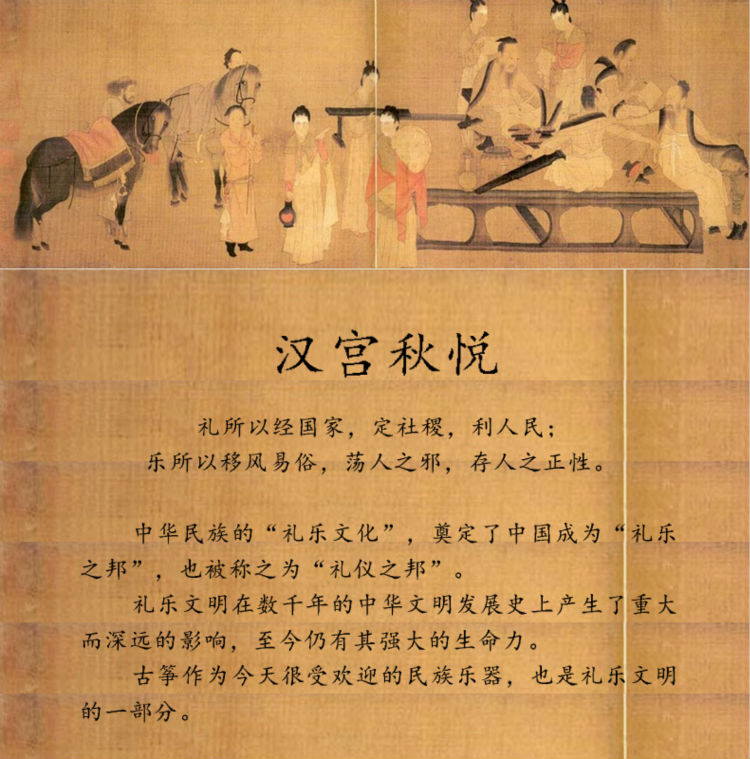 汉宫秋悦
礼所以经国家，定社稷，利人民；
乐所以移风易俗，荡人之邪，存人之正性。
中华民族的“礼乐文化”，奠定了中国成为“礼乐
之邦”，也被称之为“礼仪之邦”。
礼乐文明在数千年的中华文明发展史上产生了重大
而深远的影响，至今仍有其强大的生命力。
古筝作为今天很受欢迎的民族乐器，也是礼乐文明
的一部分。